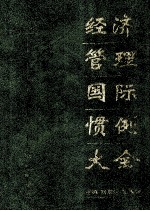 经济
管理
国际
惯例
大全